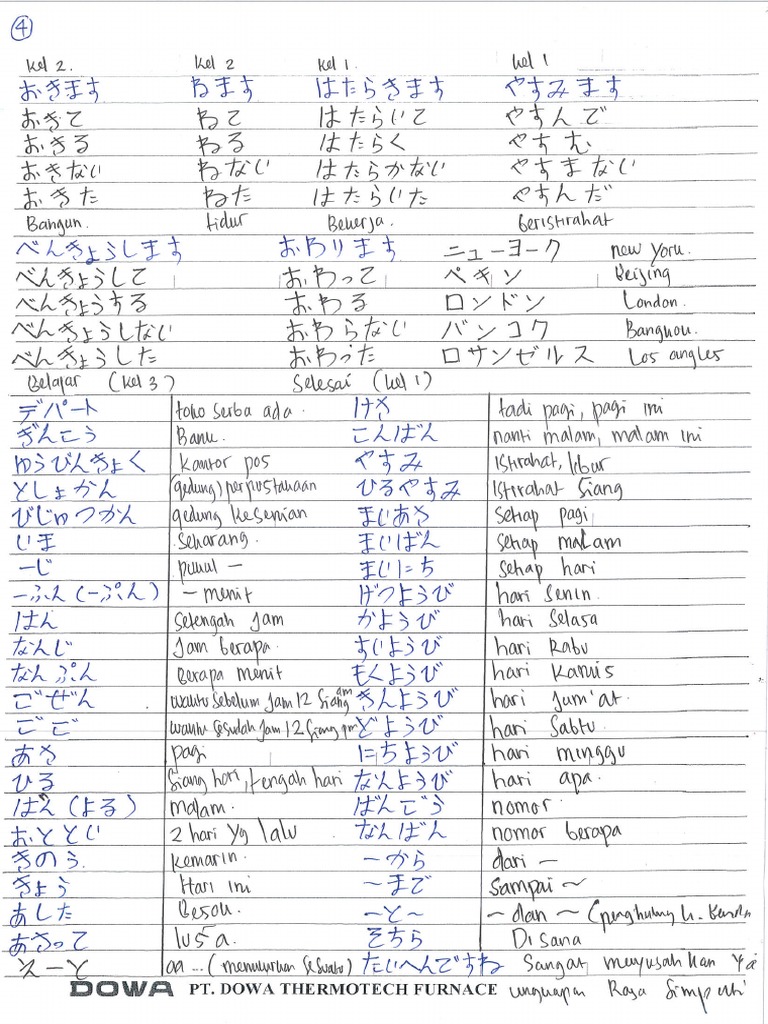 4
Kel 2. Kel 2 Kel 1. Kel 1
おきます ねます はたらきます やすみます
おきて ねて はたらいて やすんで
おきる ねる はたらく やすむ
おきない ねない はたらかない やすまない
おきた ねた はたらいた やすんだ
Bangun. tidur Bekerja. beristirahat
べんきょうします おわります ニューヨーク new york.
べんきょうして おわって ペキン Beijing
べんきょうする おわる ロンドン London.
べんきょうしない おわらない バンコク Bangkok.
べんきょうした おわった ロサンゼルス Los angles
Belajar (kel 3) Selesai (kel 1)
デパート toko serba ada. けさ tadi pagi, pagi ini
ぎんこう Bank. こんばん nanti malam, malam ini
ゆうびんきょく kantor pos やすみ Istirahat, libur
としょかん (gedung) perpustakaan ひるやすみ Istirahat Siang
びじゅつかん gedung kesenian まいあさ setiap pagi
いま sekarang. まいばん setiap malam
ーじ pukul - まいにち setiap hari
ーふん (ーぷん) - menit げつようび hari Senin.
はん setengah jam かようび hari Selasa
なんじ Jam berapa すいようび hari Rabu
なんぷん Berapa menit もくようび hari Kamis
ごぜん waktu sebelum jam 12 Siang am きんようび hari Jum'at
ごご waktu sesudah jam 12 Siang pm どようび hari Sabtu
あさ pagi にちようび hari minggu
ひる Siang hari, tengah hari なんようび hari apa.
ばん (よる) malam. ばんごう nomor
おととい 2 hari yg lalu なんばん nomor berapa
きのう kemarin. ーから dari -
きょう Hari ini 〜まで Sampai ~
あした Besok. ーと〜 - dan ~ (penghubung k. Benda
あさって lusa. そちら Disana
えーと aa ... (menuturkan sesuatu) たいへんですね Sangat menyusahkan ya
DOWA PT. DOWA THERMOTECH FURNACE ungkapan Rasa Simpati